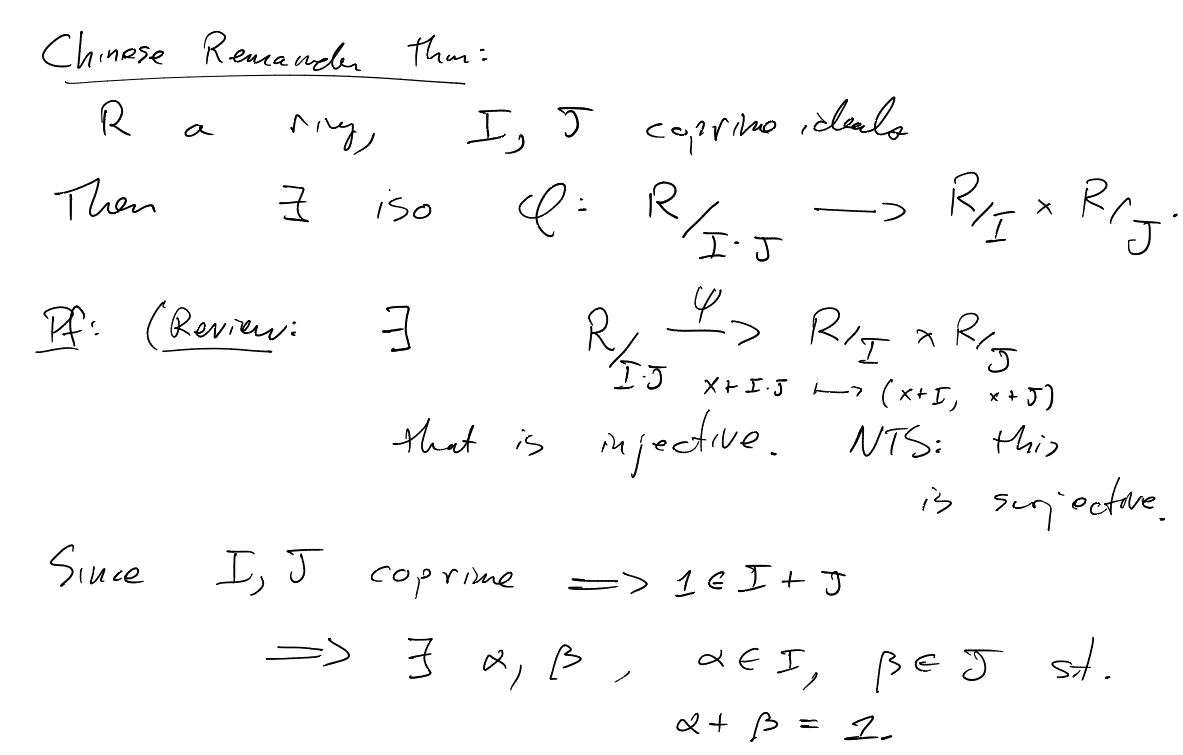 Chinese Remainder thm:
R a ring, I, J coprime ideals
Then ∃ iso φ: R/I·J → R/I × R/J.
Pf: (Review: ∃ R/I·J --φ--> R/I × R/J
x+I·J ↦ (x+I, x+J)
that is injective. NTS: this
is surjective.
Since I, J coprime => 1 ∈ I + J
=> ∃ α, β, α ∈ I, β ∈ J st.
α + β = 1.